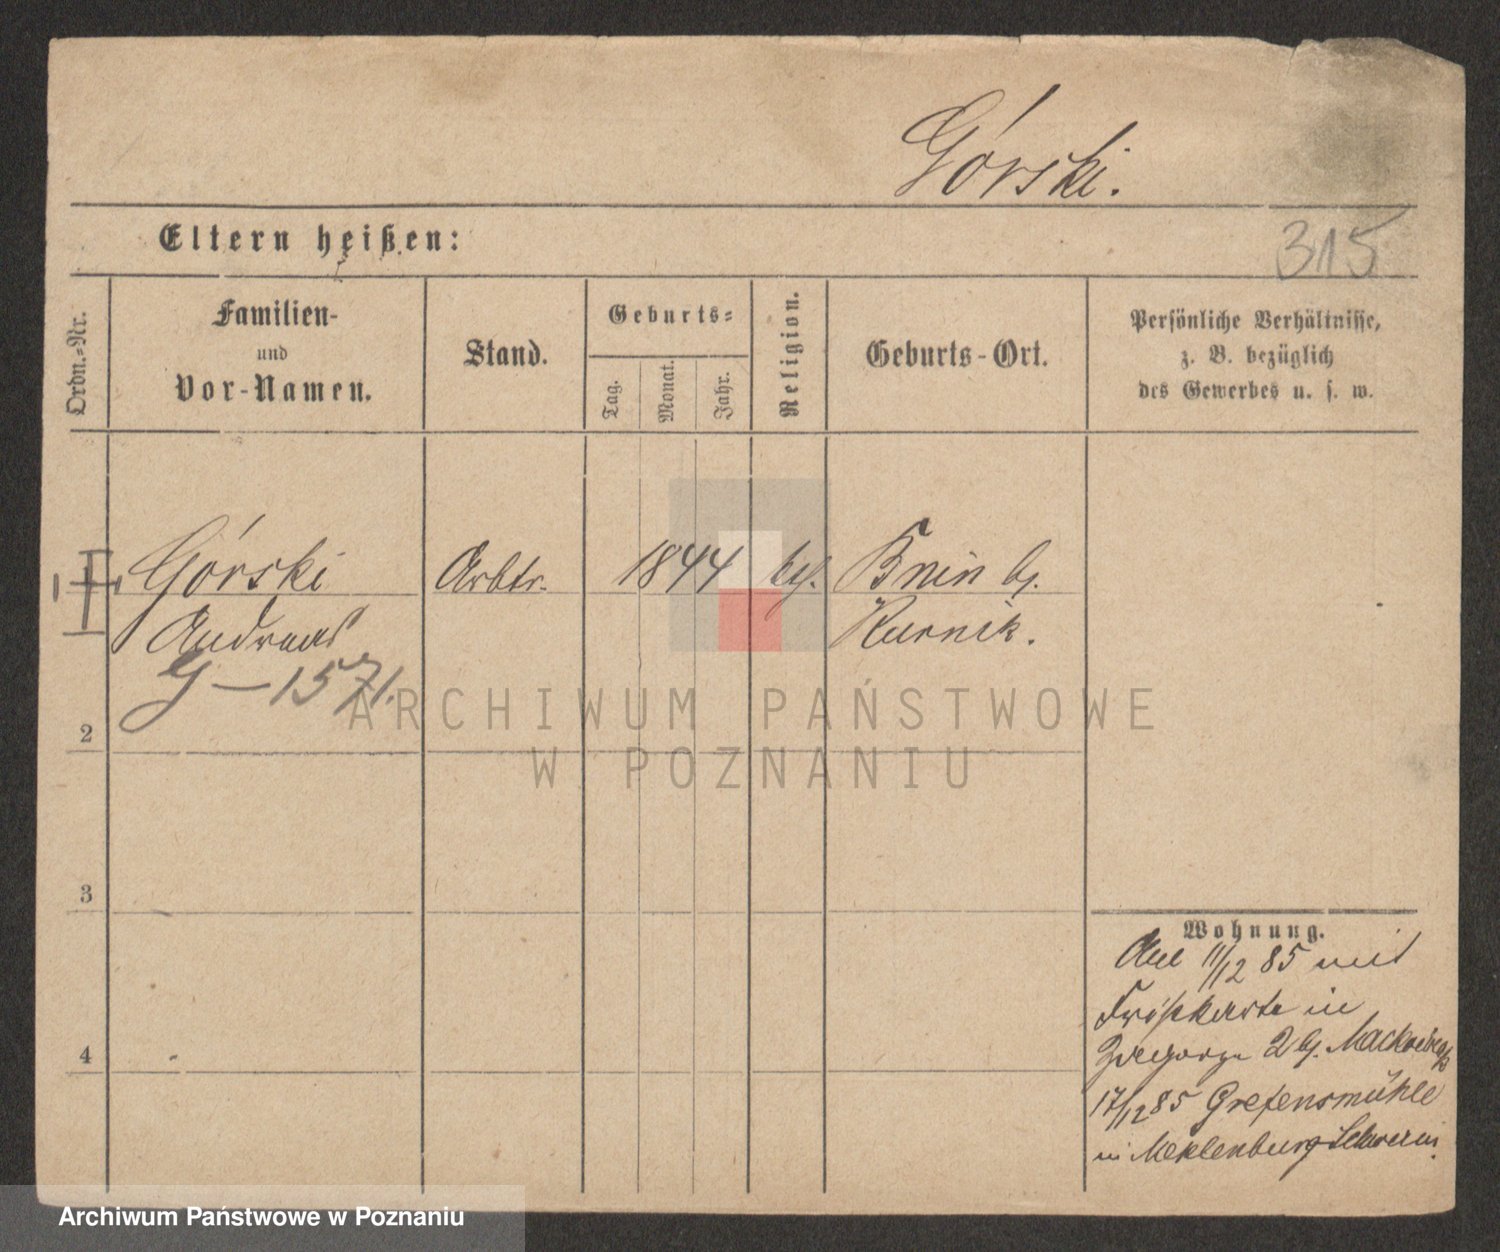 Górski.
Eltern heißen:
315
Ordn.-Nr.
Familien-
und
Vor-Namen.
Stand.
Geburts-
Tag.
Monat.
Jahr.
Religion.
Geburts-Ort.
Persönliche Verhältnisse,
z. B. bezüglich
des Gewerbes u. s. w.
Górski Arbtr. 1844 Bnin b/.
Andreas Kurnik.
G-1571.
2
3
4
Wohnung.
11/12 85 mit
in
2 b/.
17/12 85 Grefensmühle
in Meklenburg Schwerin.
ARCHIWUM PAŃSTWOWE
W POZNANIU
Archiwum Państwowe w Poznaniu